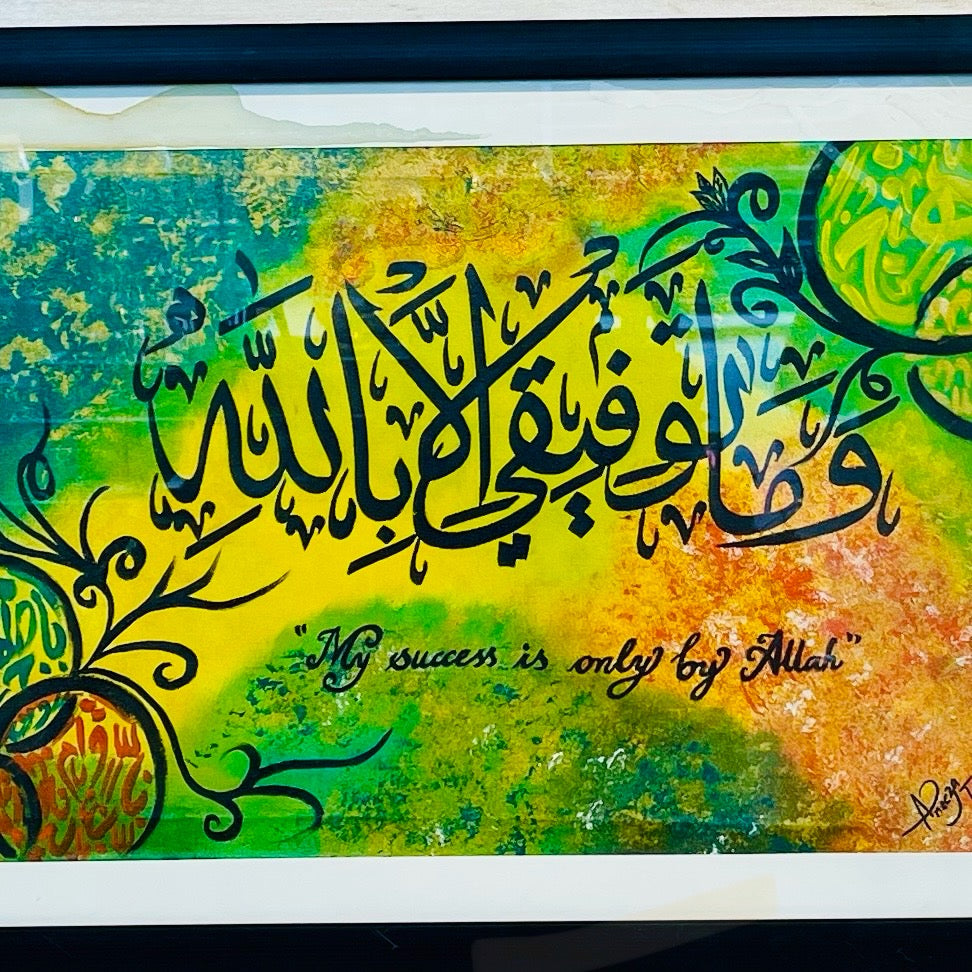 وَمَا تَوْفِيقِي إِلَّا بِاللَّهِ
"My success is only by Allah"